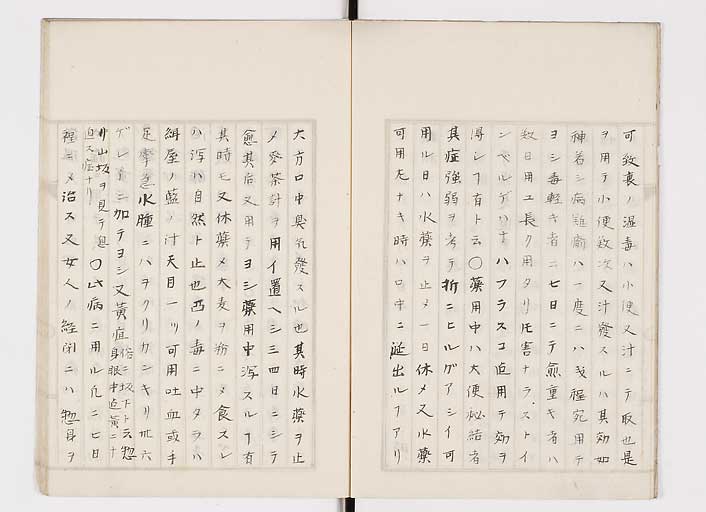 可致裏ノ湿毒ハ小便又汁ニテ取也是
ヲ用テ小便数次又汁發スルハ其効如
神若シ病難痼ハ一度ニハ 程宛用テ
ヨシ毒軽キ者ハ七日ニテ愈重キ者ハ
数日用ユ長ク用タリ圧害ナラズトイ
ンヘルゲハナハフラスコ迠用テ効ヲ
得シフ有ト云〇薬用中ハ大便秘結者
其症強弱ヲ考テ折ニヒルグアシイ可
用ル日ハ水薬ヲ止メ一日休メ又水薬
可用左ナキ時ハ口中ニ涎出ルフアリ
大方口中臭気發スル也其時水薬ヲ止
メ 茶計ヲ用イ置ヘシ三四日ニシテ
愈其后又用テヨシ藥用中瀉スルフ有
其時モ又休薬メ大麦ヲ粉ニメ食スレ
ハ瀉ハ自然ト止也 ノ毒ニ中タラハ
紺屋ノ藍ノ汁天目一ツ可用吐血或手
足攣急水腫ニハヲクリカンキリ 六
ゲレイニ加テヨシ又黄疸俗ニ坂下ト云惣身眼中迠黄ニナ
リ山坂ヲ見テ息迫ス症ナリ〇此病ニ用ル凡ニ七日
程ニメ治ス又女人ノ経閉ニハ惣身ヲ